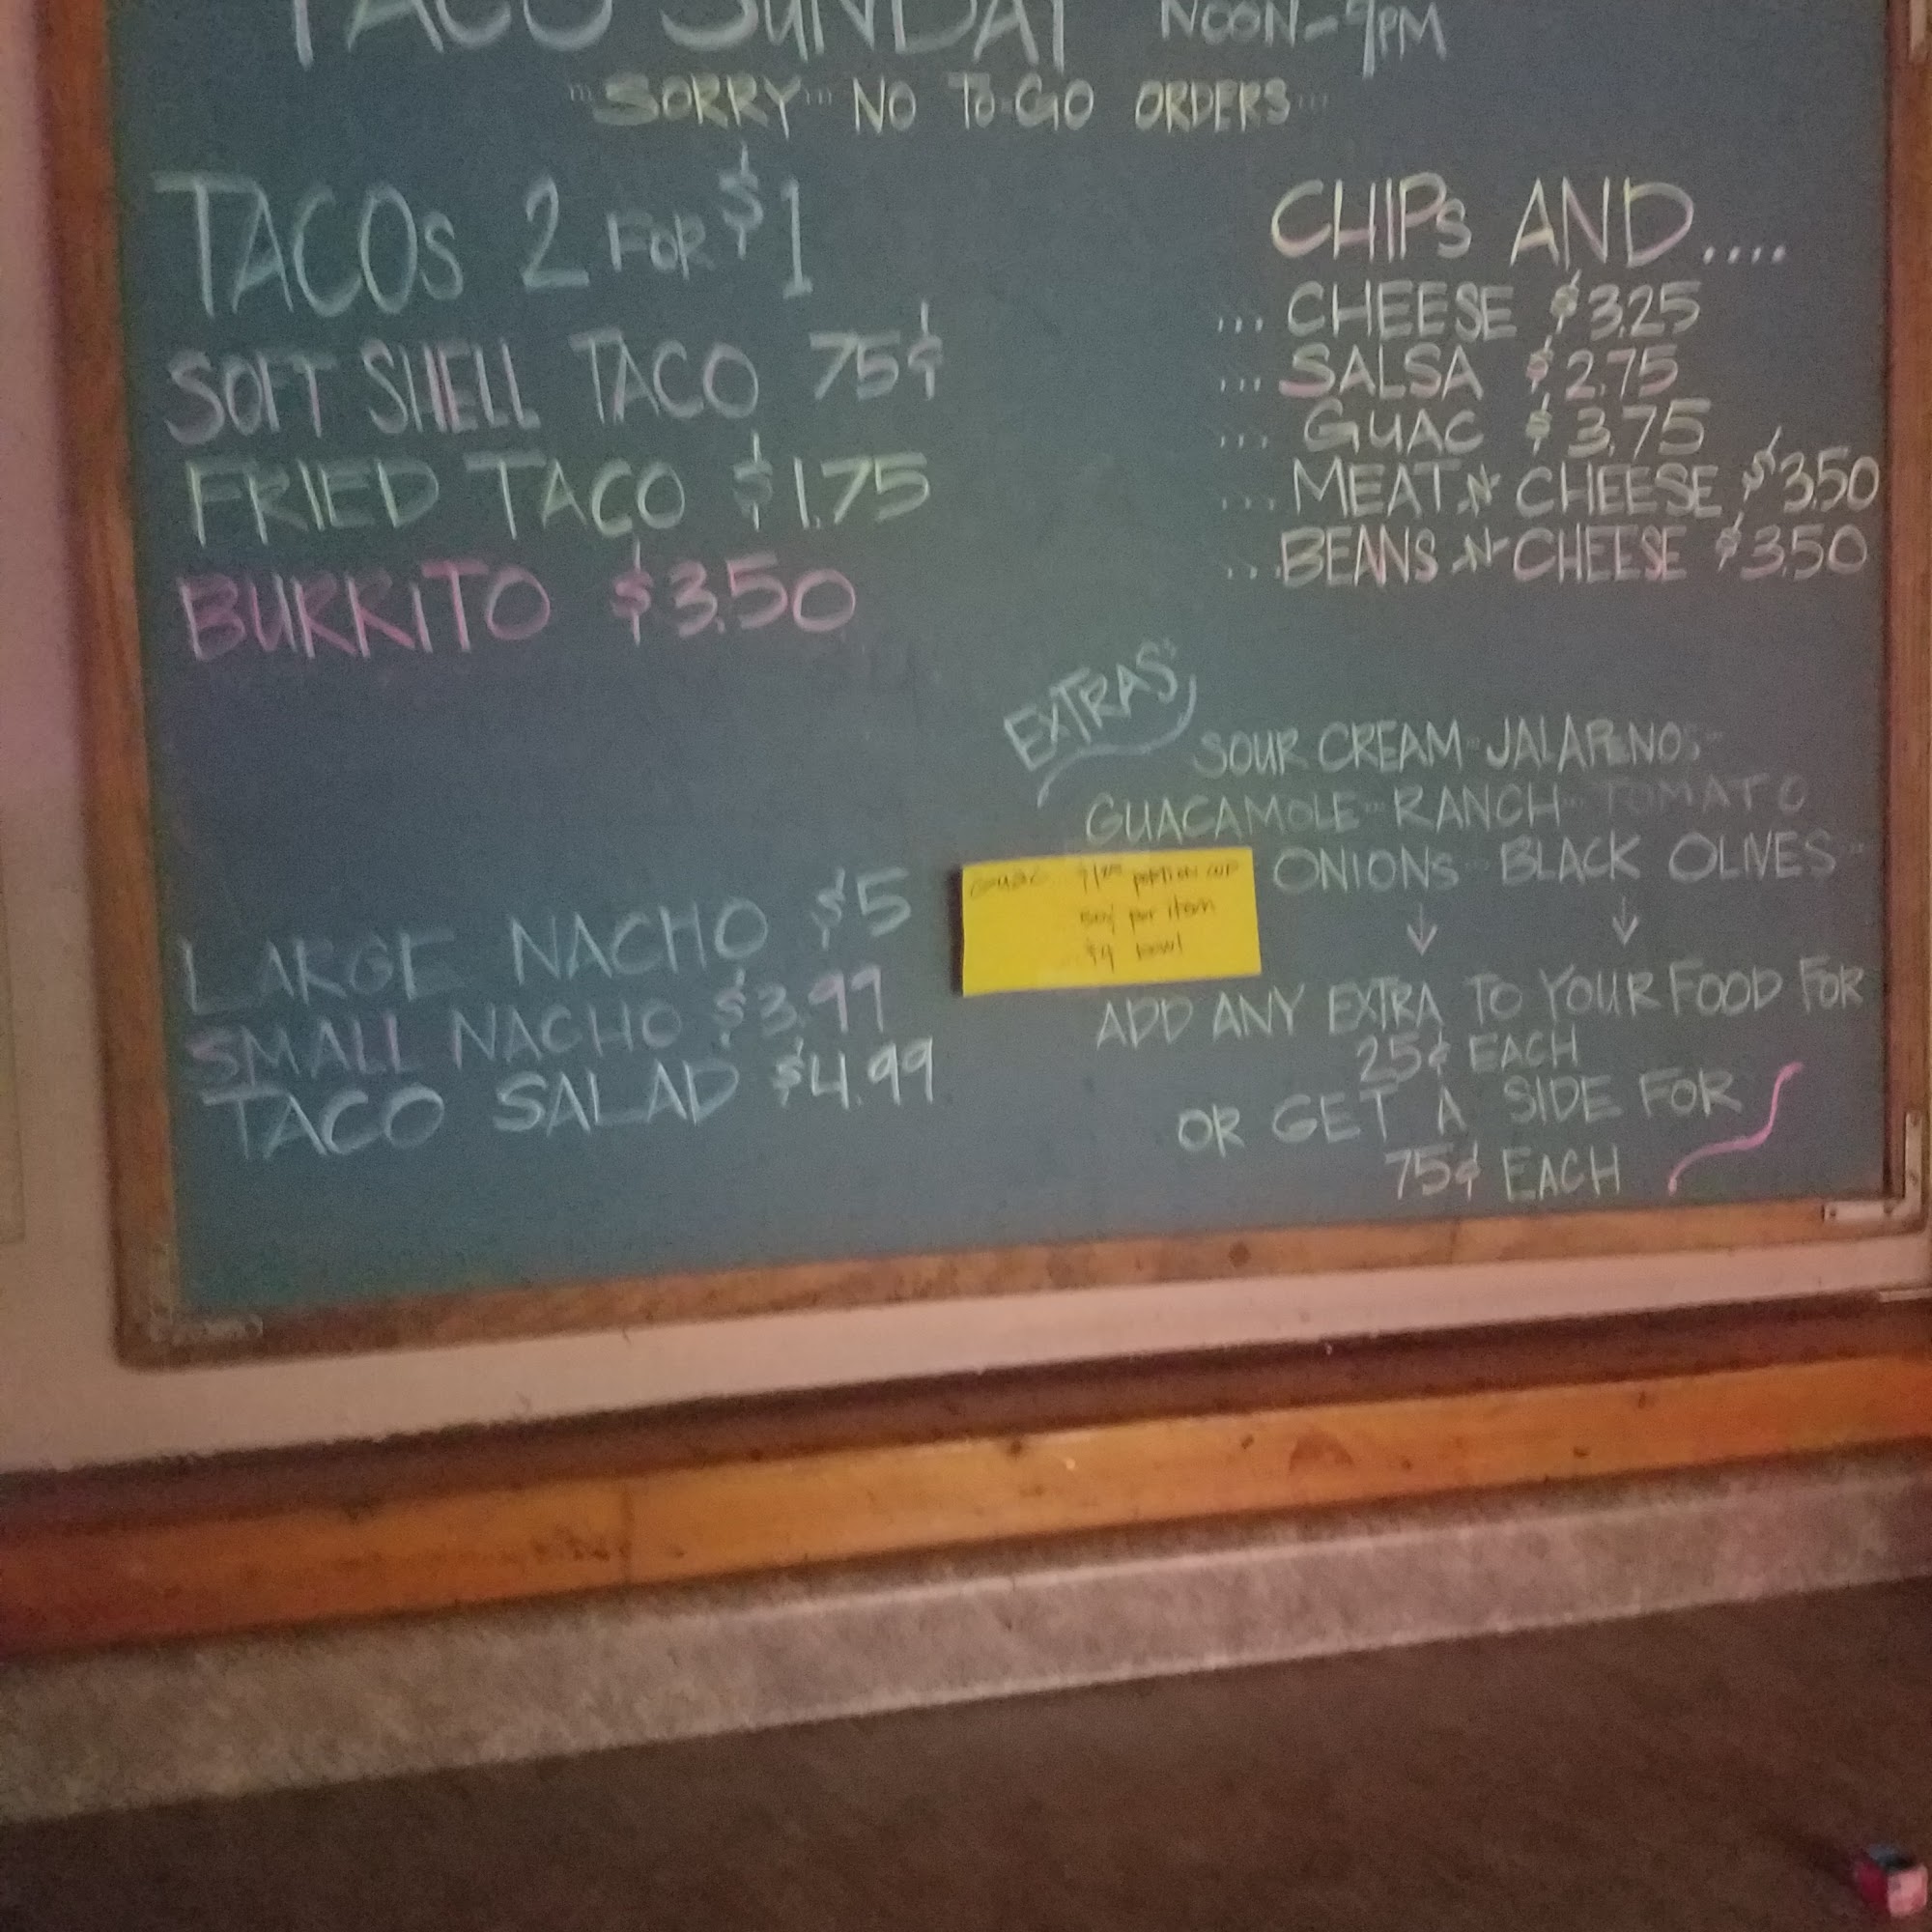 TACO SUNDAY NOON-9PM
"SORRY" NO TO-GO ORDERS...
TACOS 2 FOR $1
SOFT SHELL TACO 75¢
FRIED TACO $1.75
BURRITO $3.50
LARGE NACHO $5
SMALL NACHO $3.99
TACO SALAD $4.99
CHIPS AND....
... CHEESE $3.25
... SALSA $2.75
... GUAC $3.75
... MEAT N CHEESE $3.50
... BEANS N CHEESE $3.50
EXTRAS
SOUR CREAM JALAPENOS
GUACAMOLE RANCH TOMATO
ONIONS BLACK OLIVES
GUAC portion cup
per item
bowl
ADD ANY EXTRA TO YOUR FOOD FOR
25¢ EACH
OR GET A SIDE FOR
75¢ EACH